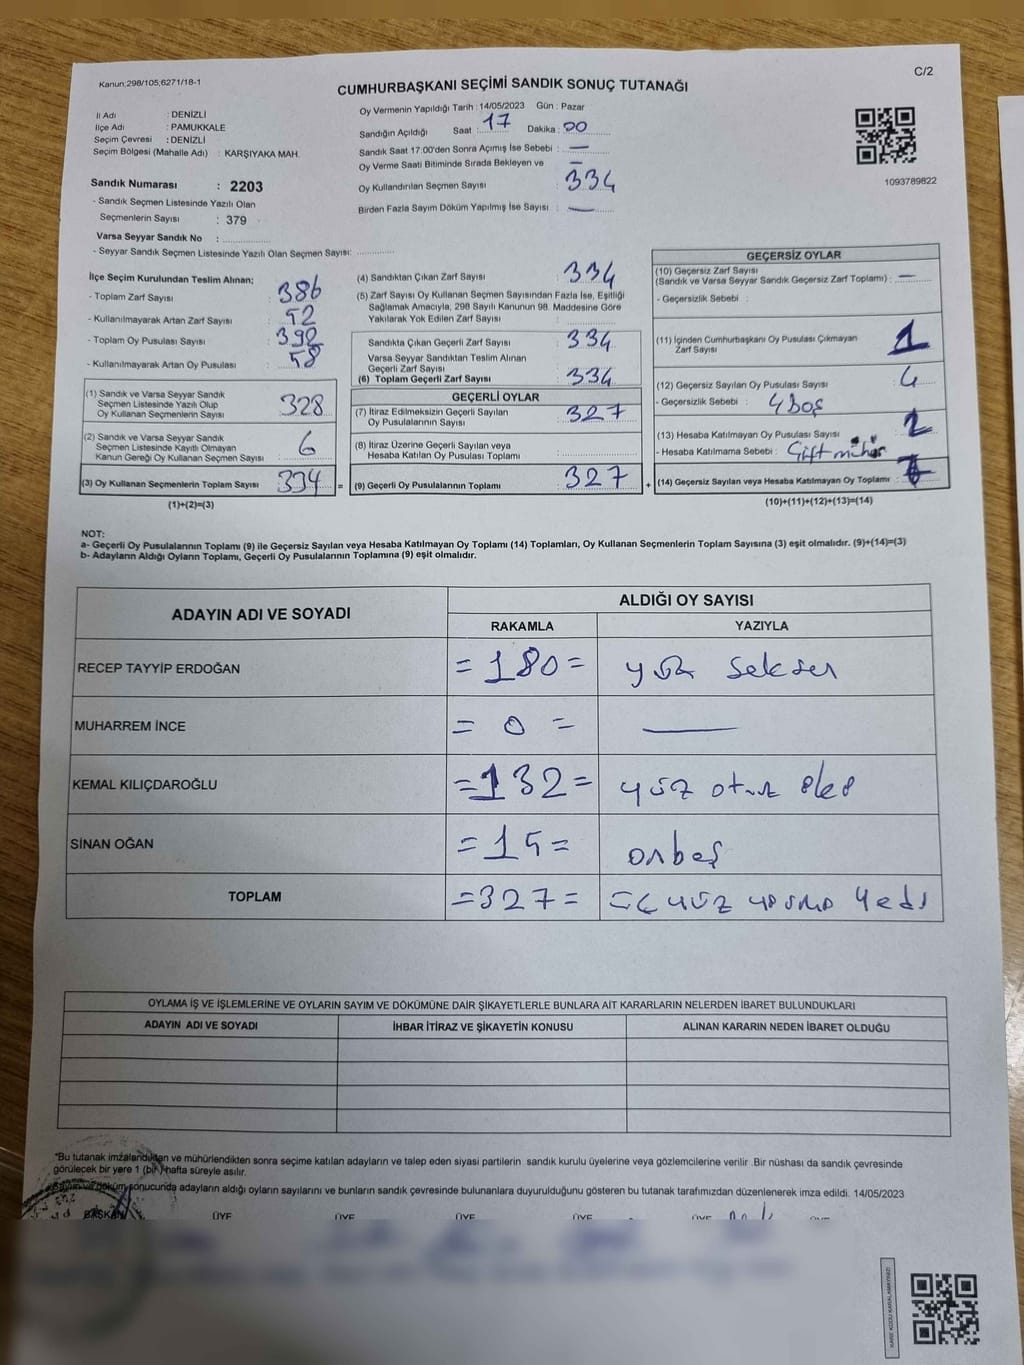 Kanun:298/105,6271/18-1
C/2
CUMHURBAŞKANI SEÇİMİ SANDIK SONUÇ TUTANAĞI
İl Adı : DENİZLİ
İlçe Adı : PAMUKKALE
Seçim Çevresi : DENİZLİ
Seçim Bölgesi (Mahalle Adı) : KARŞIYAKA MAH.
Sandık Numarası : 2203
- Sandık Seçmen Listesinde Yazılı Olan
Seçmenlerin Sayısı : 379
Varsa Seyyar Sandık No :
- Seyyar Sandık Seçmen Listesinde Yazılı Olan Seçmen Sayısı:
Oy Vermenin Yapıldığı Tarih : 14/05/2023 Gün : Pazar
Sandığın Açıldığı Saat : 17 Dakika : 00
Sandık Saat 17:00'den Sonra Açımış İse Sebebi : —
Oy Verme Saati Bitiminde Sırada Bekleyen ve –
Oy Kullandırılan Seçmen Sayısı : 334
Birden Fazla Sayım Döküm Yapılmış İse Sayısı : —
1093789822
İlçe Seçim Kurulundan Teslim Alınan;
- Toplam Zarf Sayısı : 386
- Kullanılmayarak Artan Zarf Sayısı : 52
- Toplam Oy Pusulası Sayısı : 392
- Kullanılmayarak Artan Oy Pusulası : 58
(1) Sandık ve Varsa Seyyar Sandık
Seçmen Listesinde Yazılı Olup
Oy Kullanan Seçmenlerin Sayısı : 328
(2) Sandık ve Varsa Seyyar Sandık
Seçmen Listesinde Kayıtlı Olmayan
Kanun Gereği Oy Kullanan Seçmen Sayısı : 6
(3) Oy Kullanan Seçmenlerin Toplam Sayısı : 334 =
(1)+(2)=(3)
(4) Sandıktan Çıkan Zarf Sayısı : 334
(5) Zarf Sayısı Oy Kullanan Seçmen Sayısından Fazla İse, Eşitliği
Sağlamak Amacıyla, 298 Sayılı Kanunun 98. Maddesine Göre
Yakılarak Yok Edilen Zarf Sayısı :
Sandıkta Çıkan Geçerli Zarf Sayısı : 334
Varsa Seyyar Sandıktan Teslim Alınan
Geçerli Zarf Sayısı :
(6) Toplam Geçerli Zarf Sayısı : 334
GEÇERLİ OYLAR
(7) İtiraz Edilmeksizin Geçerli Sayılan
Oy Pusulasının Sayısı : 327
(8) İtiraz Üzerine Geçerli Sayılan veya
Hesaba Katılan Oy Pusulası Toplamı :
(9) Geçerli Oy Pusulalarının Toplamı : 327 +
GEÇERSİZ OYLAR
(10) Geçersiz Zarf Sayısı
(Sandık ve Varsa Seyyar Sandık Geçersiz Zarf Toplamı) : —
- Geçersizlik Sebebi :
(11) İçinden Cumhurbaşkanı Oy Pusulası Çıkmayan
Zarf Sayısı : 1
(12) Geçersiz Sayılan Oy Pusulası Sayısı : 4
- Geçersizlik Sebebi : 4 boş
(13) Hesaba Katılmayan Oy Pusulası Sayısı : 2
- Hesaba Katılmama Sebebi : Çift mühür
(14) Geçersiz Sayılan veya Hesaba Katılmayan Oy Toplamı : 7
(10)+(11)+(12)+(13)=(14)
NOT:
a- Geçerli Oy Pusulalarının Toplamı (9) ile Geçersiz Sayılan veya Hesaba Katılmayan Oy Toplamı (14) Toplamları, Oy Kullanan Seçmenlerin Toplam Sayısına (3) eşit olmalıdır. (9)+(14)=(3)
b- Adayların Aldığı Oyların Toplamı, Geçerli Oy Pusulalarının Toplamına (9) eşit olmalıdır.
ADAYIN ADI VE SOYADI ALDIĞI OY SAYISI
RAKAMLA YAZIYLA
RECEP TAYYİP ERDOĞAN =180= yüz seksen
MUHARREM İNCE = 0 = —
KEMAL KILIÇDAROĞLU =132= yüz otuz iki
SİNAN OĞAN =15= onbeş
TOPLAM =327= üç yüz yirmi yedi
OYLAMA İŞ VE İŞLEMLERİNE VE OYLARIN SAYIM VE DÖKÜMÜNE DAİR ŞİKAYETLERLE BUNLARA AİT KARARLARIN NELERDEN İBARET BULUNDUKLARI
ADAYIN ADI VE SOYADI İHBAR İTİRAZ VE ŞİKAYETİN KONUSU ALINAN KARARIN NEDEN İBARET OLDUĞU
*Bu tutanak imzalandıktan ve mühürlendikten sonra seçime katılan adayların ve talep eden siyasi partilerin sandık kurulu üyelerine veya gözlemcilerine verilir .Bir nüshası da sandık çevresinde
görülecek bir yere 1 (bir) hafta süreyle asılır.
Sayım ve döküm sonucunda adayların aldığı oyların sayılarını ve bunların sandık çevresinde bulunanlara duyurulduğunu gösteren bu tutanak tarafımızdan düzenlenerek imza edildi. 14/05/2023
BAŞKAN ÜYE ÜYE ÜYE ÜYE ÜYE ÜYE